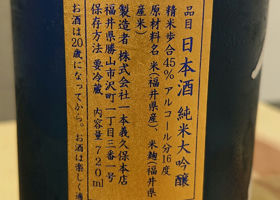 品目 日本酒 純米大吟醸
精米歩合45% アルコール分16度
原材料名 米(福井県産)、米麹(福井県
産米)
製造者 株式会社一本義久保本店
福井県勝山市沢町一丁目三番一号
保存方法 要冷蔵 内容量720ml
お酒は20歳になってから。お酒は楽しく適